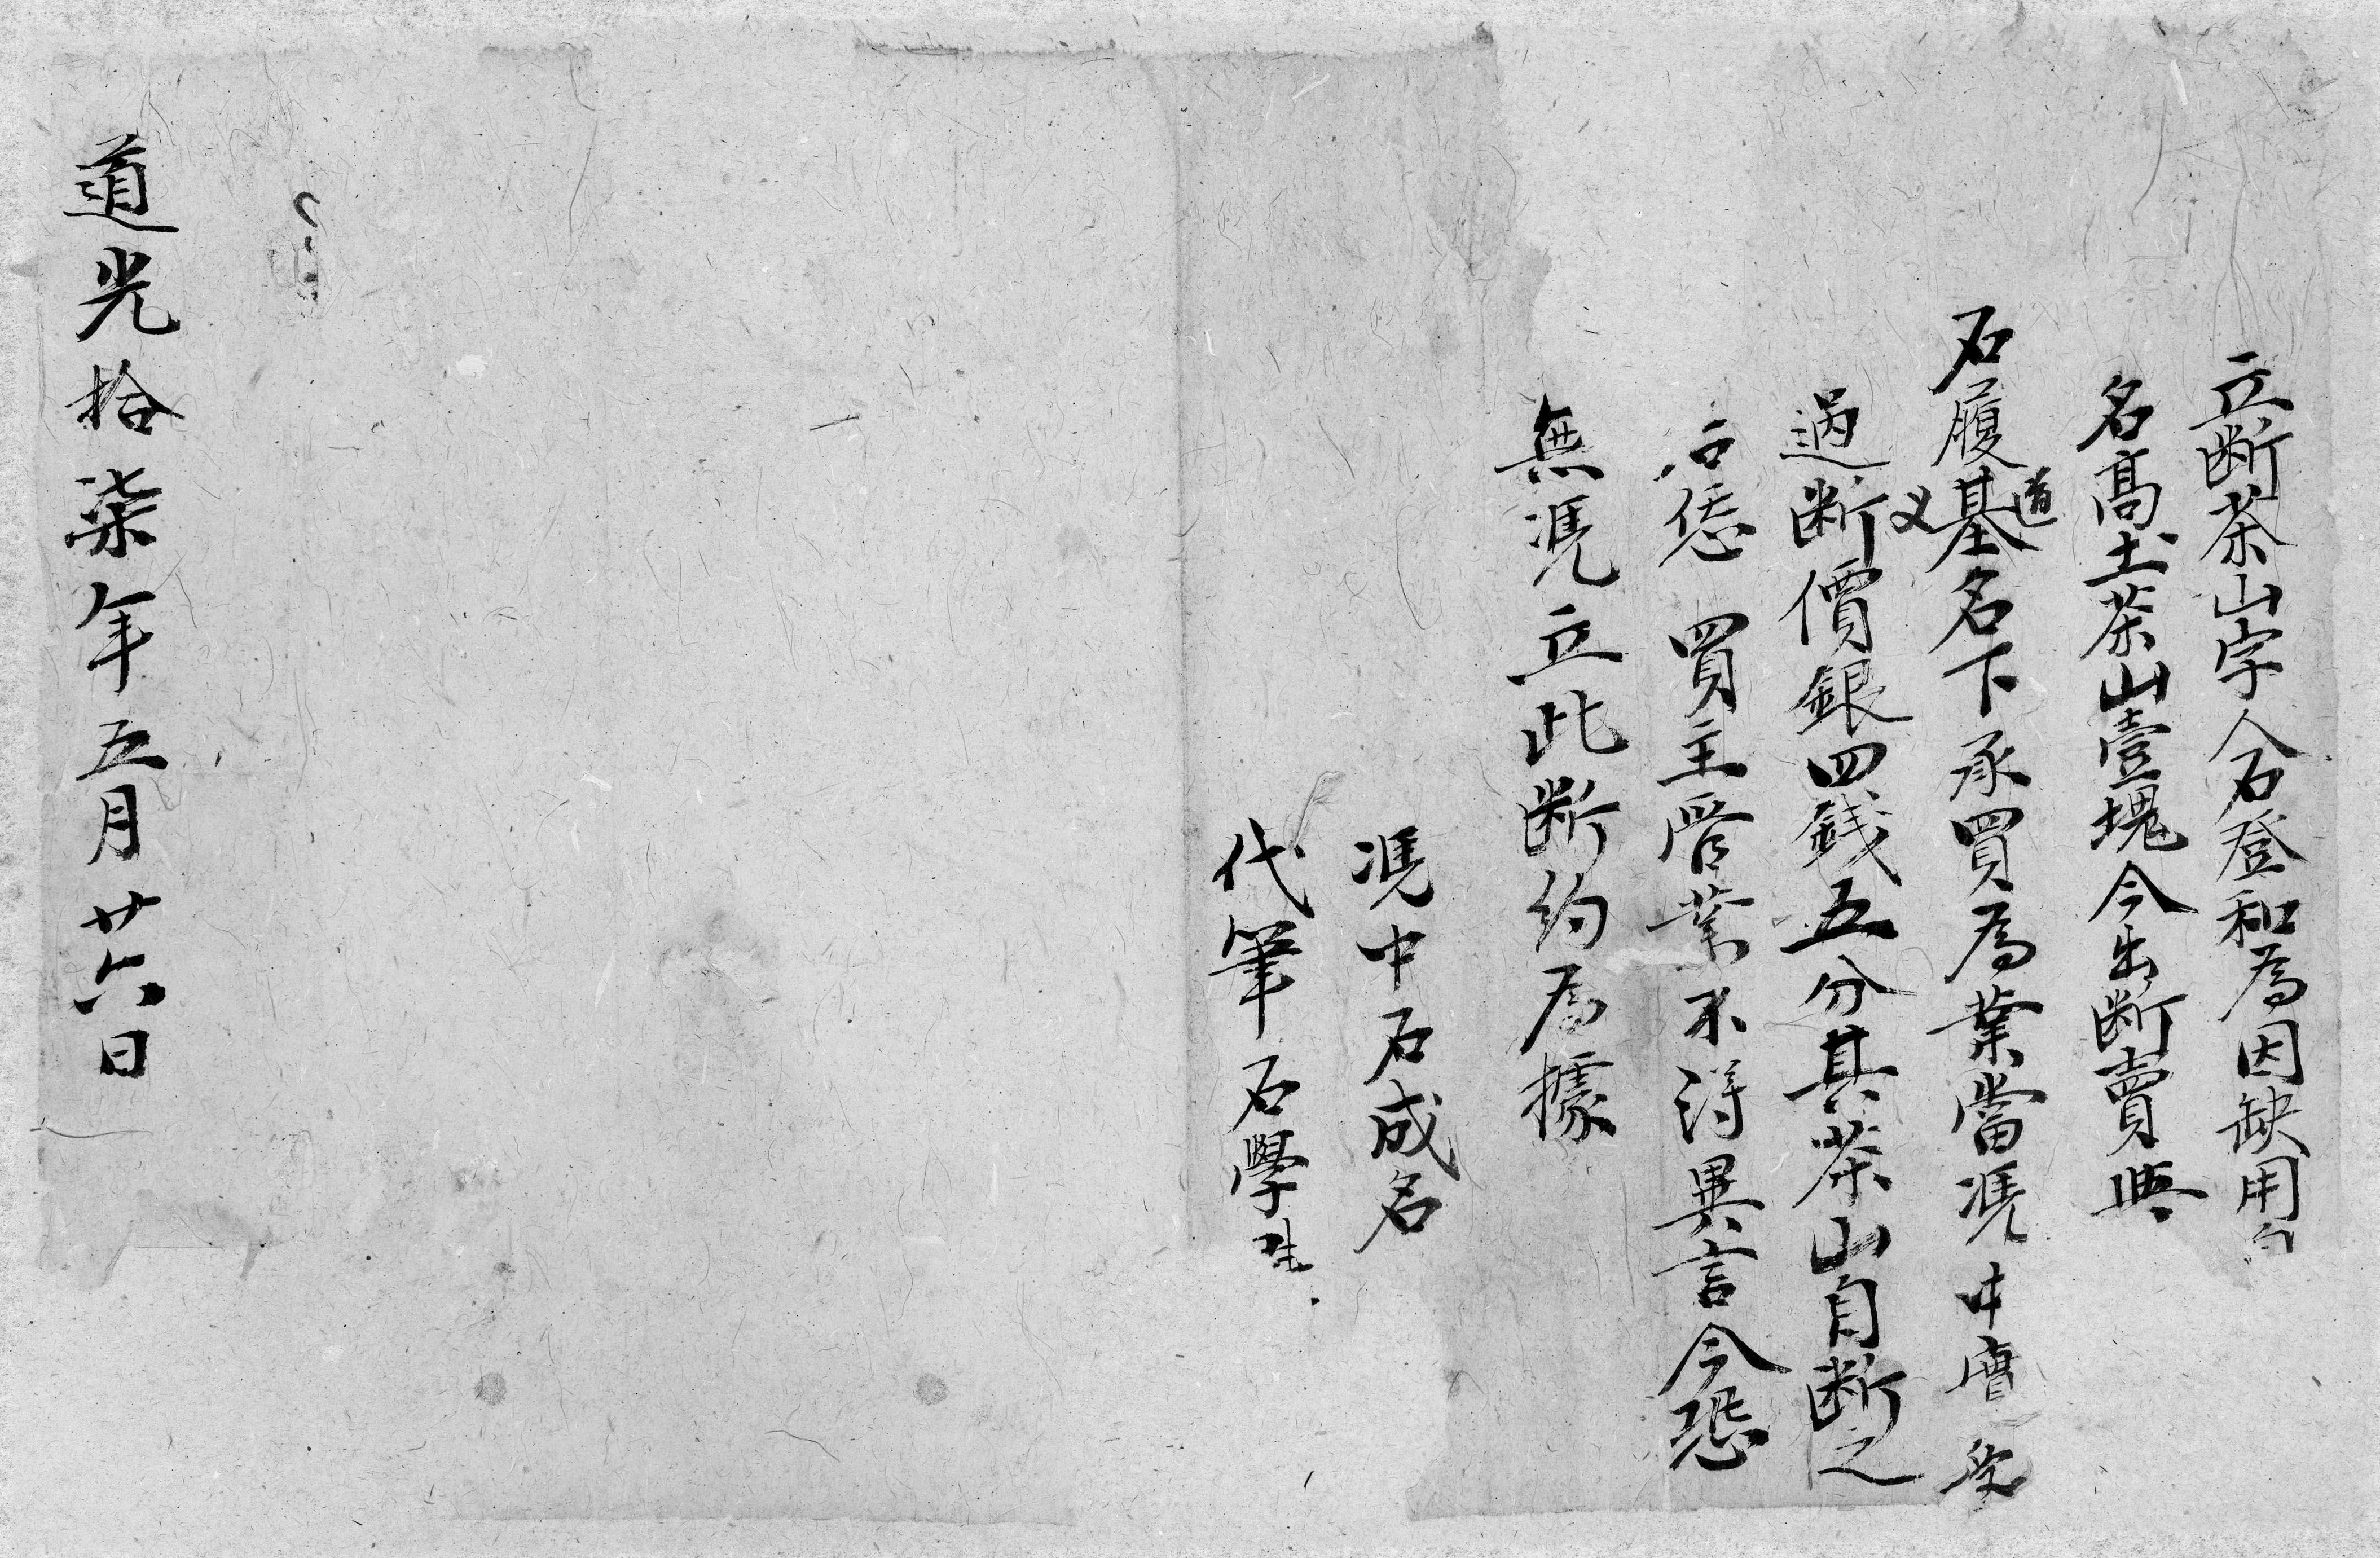 立断茶山字人石登和為因缺用自
名高土茶山壹塊今出断賣與
石履基道义名下承買為業當凴中膚受
過断價銀四錢五分其茶山自断之
后恁買主管業不得異言今恐
無凴立此断約為據
凴中石成名
代筆石學
道光拾柒年五月廿六日